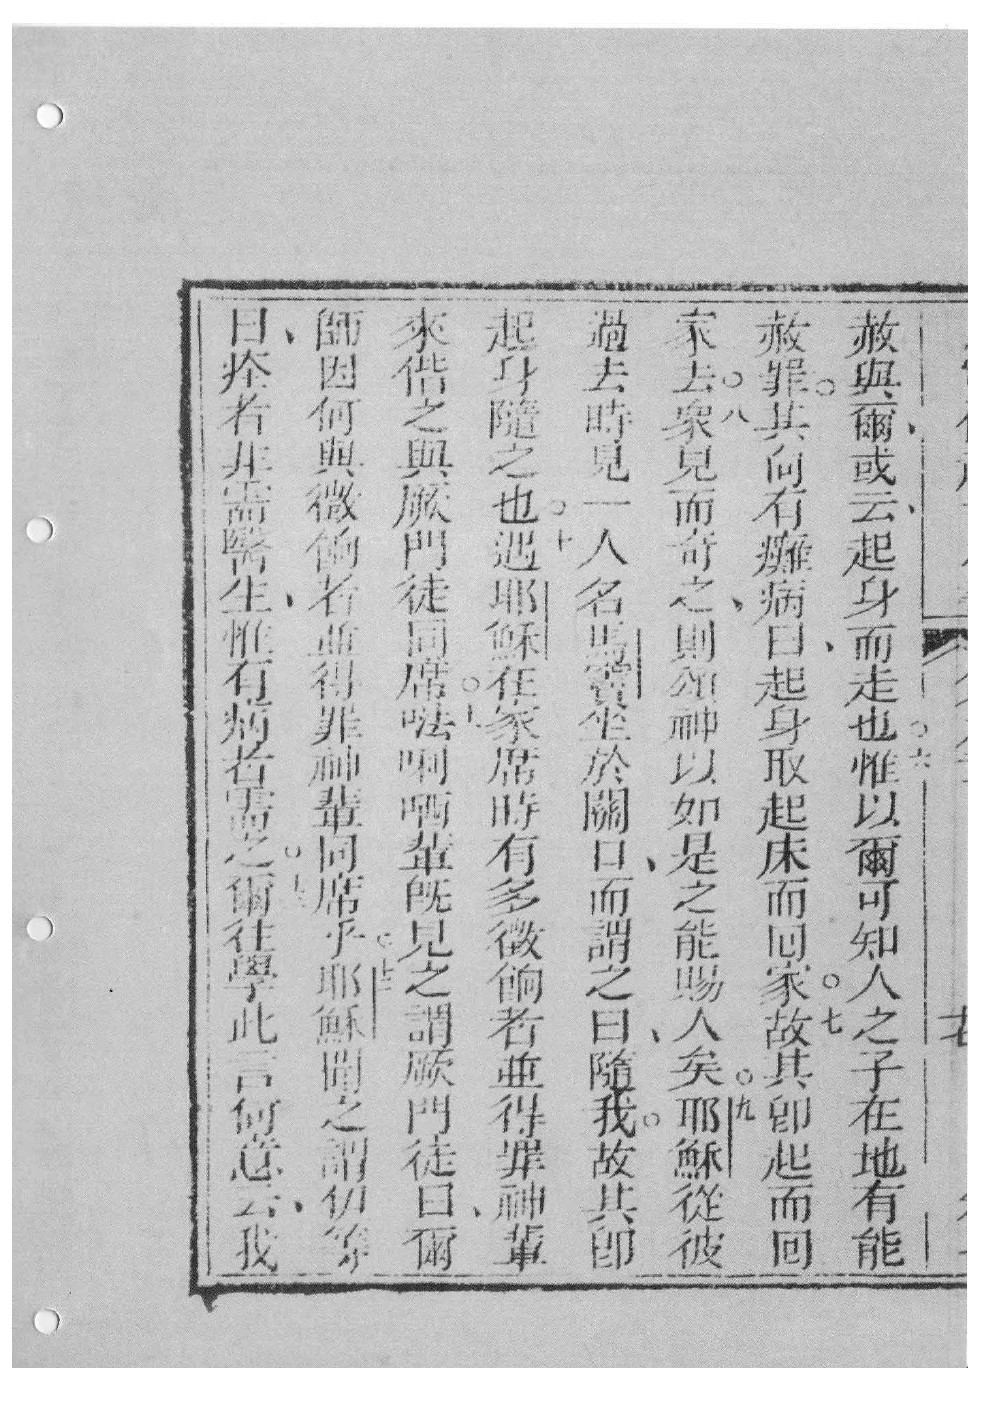 赦與爾、或云、起身而走也○六惟以爾可知人之子在地有能
赦罪○其向有癱病曰、起身取起床而回家○七故其卽起而回
家去○八衆見而奇之、則頌神以如是之能賜人矣○九耶穌從彼
過去時見一人名馬竇坐於關口、而謂之曰、隨我○故其卽
起身隨之也○十遇耶穌在家席時有多徵餉者並得罪神輩
來偕之與厥門徒同席○十一㕵唎哂輩旣見之謂厥門徒曰、爾
師因何與徵餉者並得罪神輩同席乎○十二耶穌聞之謂伊等
曰、痊者非需醫生、惟有病者需之○十三爾往學此言何意云、我